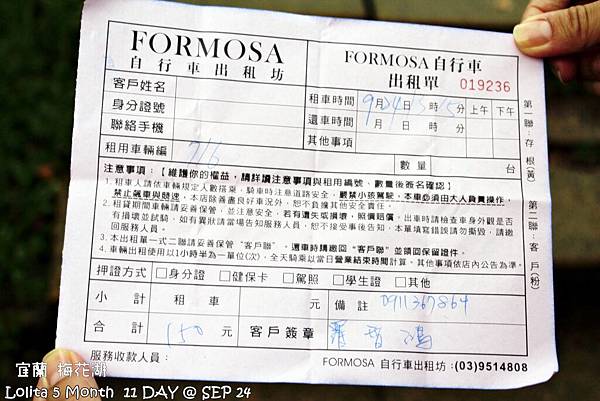 FORMOSA
自行車出租坊
FORMOSA自行車
出租單 019236
客戶姓名
身分證號
聯絡手機
租車時間 9月24日 3時15分 上午 下午
還車時間 月 日 時 分
其他事項
租用車輛編 數量 台
注意事項:【維護你的權益,請詳讀注意事項與租用編號、數量後簽名確認】
1.租車人請依車輛規定人數搭乘,騎車時注意道路安全,嚴禁小孩駕駛,本車必須由大人負責操作,
禁止飆車與競速,本店除善盡良好車況外,恕不負擔其他安全責任。
2.租賃期間車輛請妥善保管,並注意安全,若有遺失或損壞,照價賠償,出車時請檢查車身外觀是否
有損壞並試騎,如有異狀請當場告知服務人員,恕不接受事後告知,本單填寫錯誤請勿撕毀,請繳
回服務人員。
3.本出租單一式二聯請妥善保管“客戶聯”,還車時請繳回“客戶聯”並領回保留證件。
4.車輛出租使用以1小時半為一單位(次),全天騎乘以當日營業結束時間計算。其他事項依店內公告為準。
押證方式 □身分證 □健保卡 □駕照 □學生證 □其他
小計 租車 元 備註 0911367864
合計 150 元 客戶簽章
服務收款人員: FORMOSA 自行車出租坊:(03)9514808
第一聯:存根(黃) 第二聯:客戶(粉)
宜蘭 梅花湖
Lolita 5 Month 11 DAY @ SEP 24